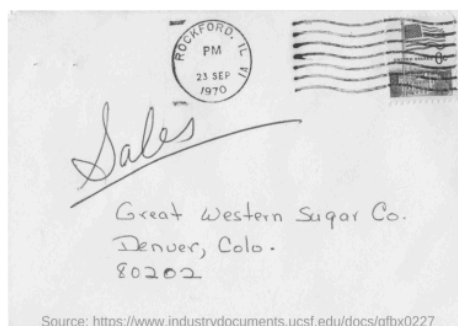 ROCKFORD, IL
PM
23 SEP
1970
UNITED STATES
Sales
Great Western Sugar Co.
Denver, Colo.
80202
Source: https://www.industrydocuments.ucsf.edu/docs/qfbx0227